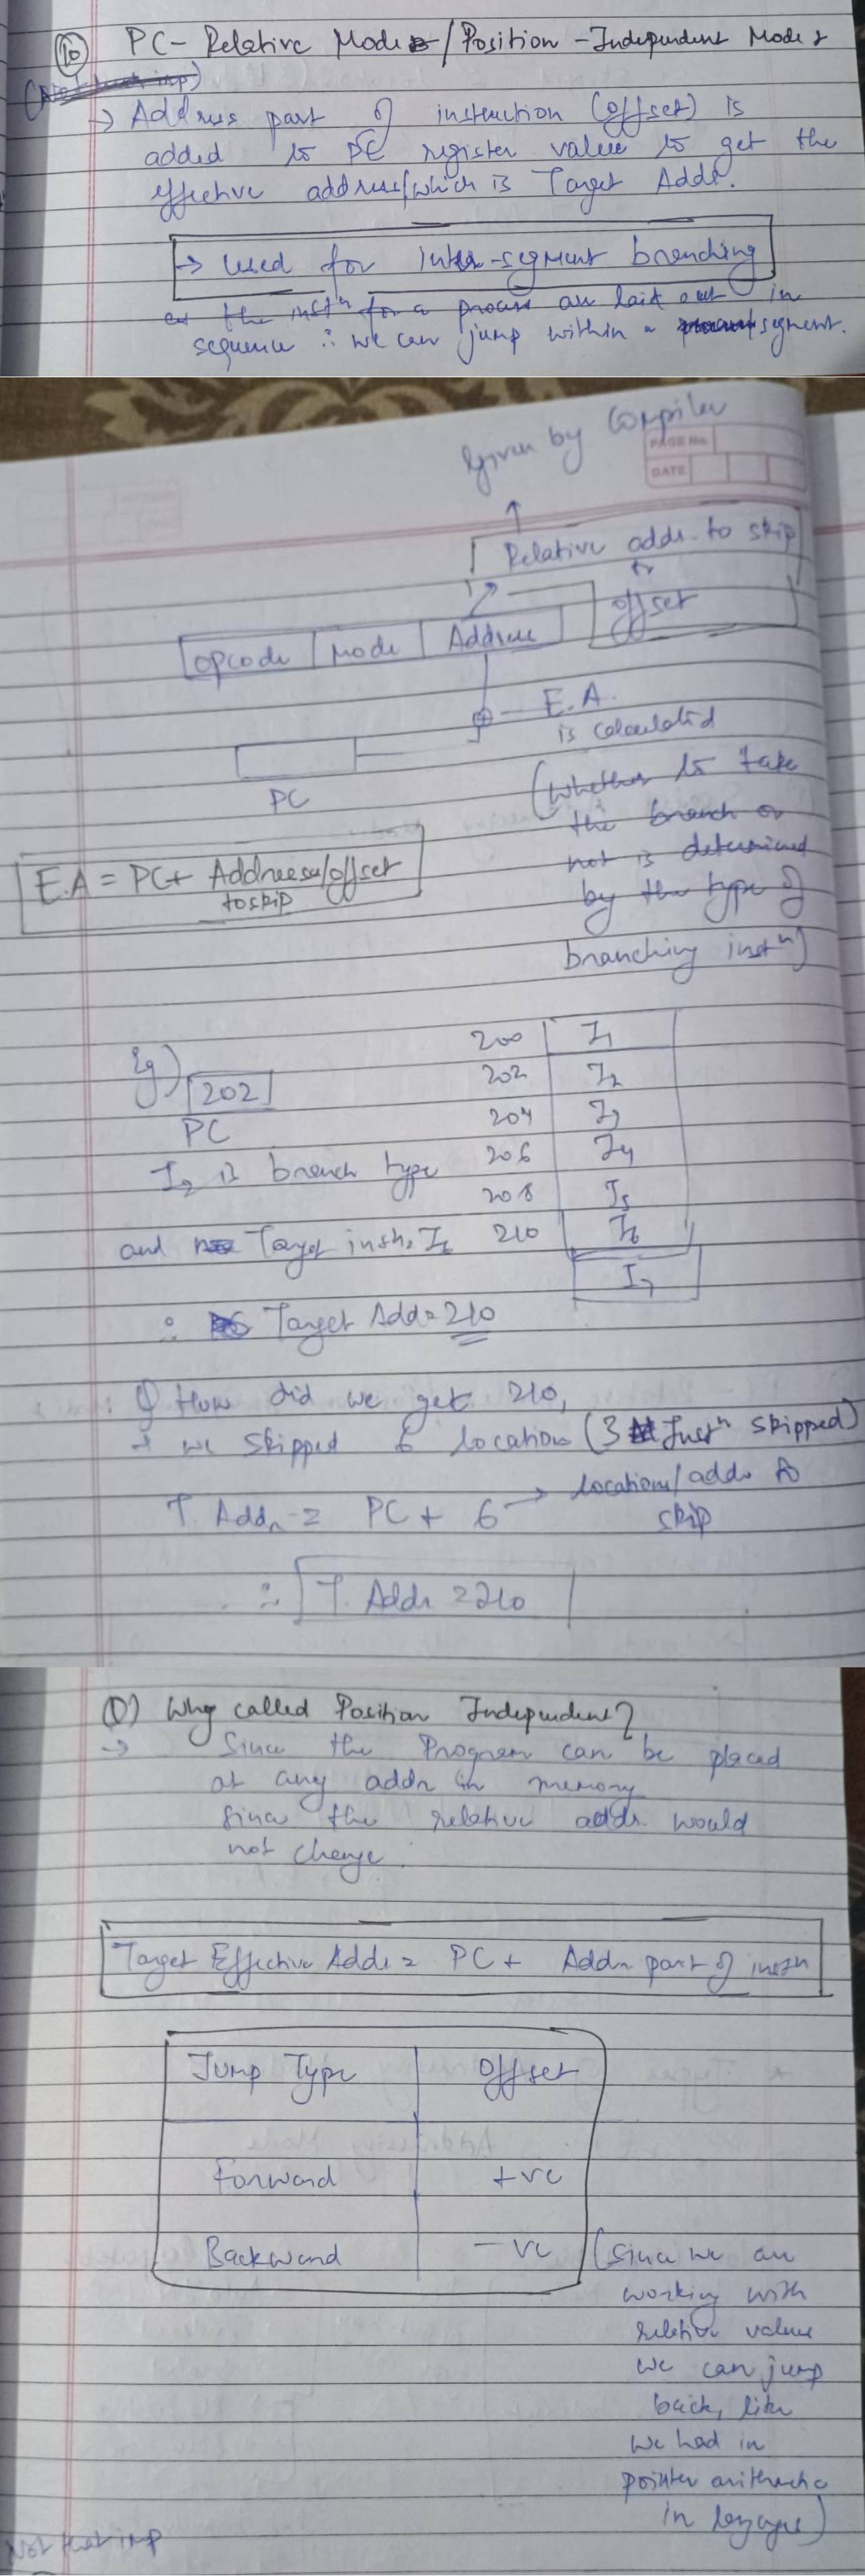 10 PC- Relative Mode / Position - Independent Mode :
→ Address part of instruction (offset) is
added to PC register value to get the
effective address/which is Target Addr.
→ Used for Intra-segment branching
as the instn for a process are laid out in
sequence ∴ we can jump within a segment.
Given by Compiler
PAGE No.
DATE
Relative addr. to skip
or
offset
Opcode | Mode | Address
+ — E.A.
is calculated
PC
(Whether to take
the branch or
not is determined
by the type of
branching instn)
E.A = PC+ Address/offset
to skip
200 I1
Eg) 202 202 I2
PC 204 I3
I2 is branch type 206 I4
208 I5
and Target instn I6 210 I6
I7
∴ Target Add = 210
Q How did we get 210,
→ we skipped 6 locations (3 Instn skipped)
T. Addr = PC + 6 → location/addr to
skip
∴ T. Addr = 210
Q) Why called Position Independent?
→ Since the Program can be placed
at any addr in memory
since the relative addr. would
not change.
Target Effective Addr = PC + Addr part of instn
Jump Type | Offset
Forward | +ve
Backward | -ve
(since we are
working with
relative values
we can jump
back, like
we had in
pointer arithmetic
in languages)
Not that imp